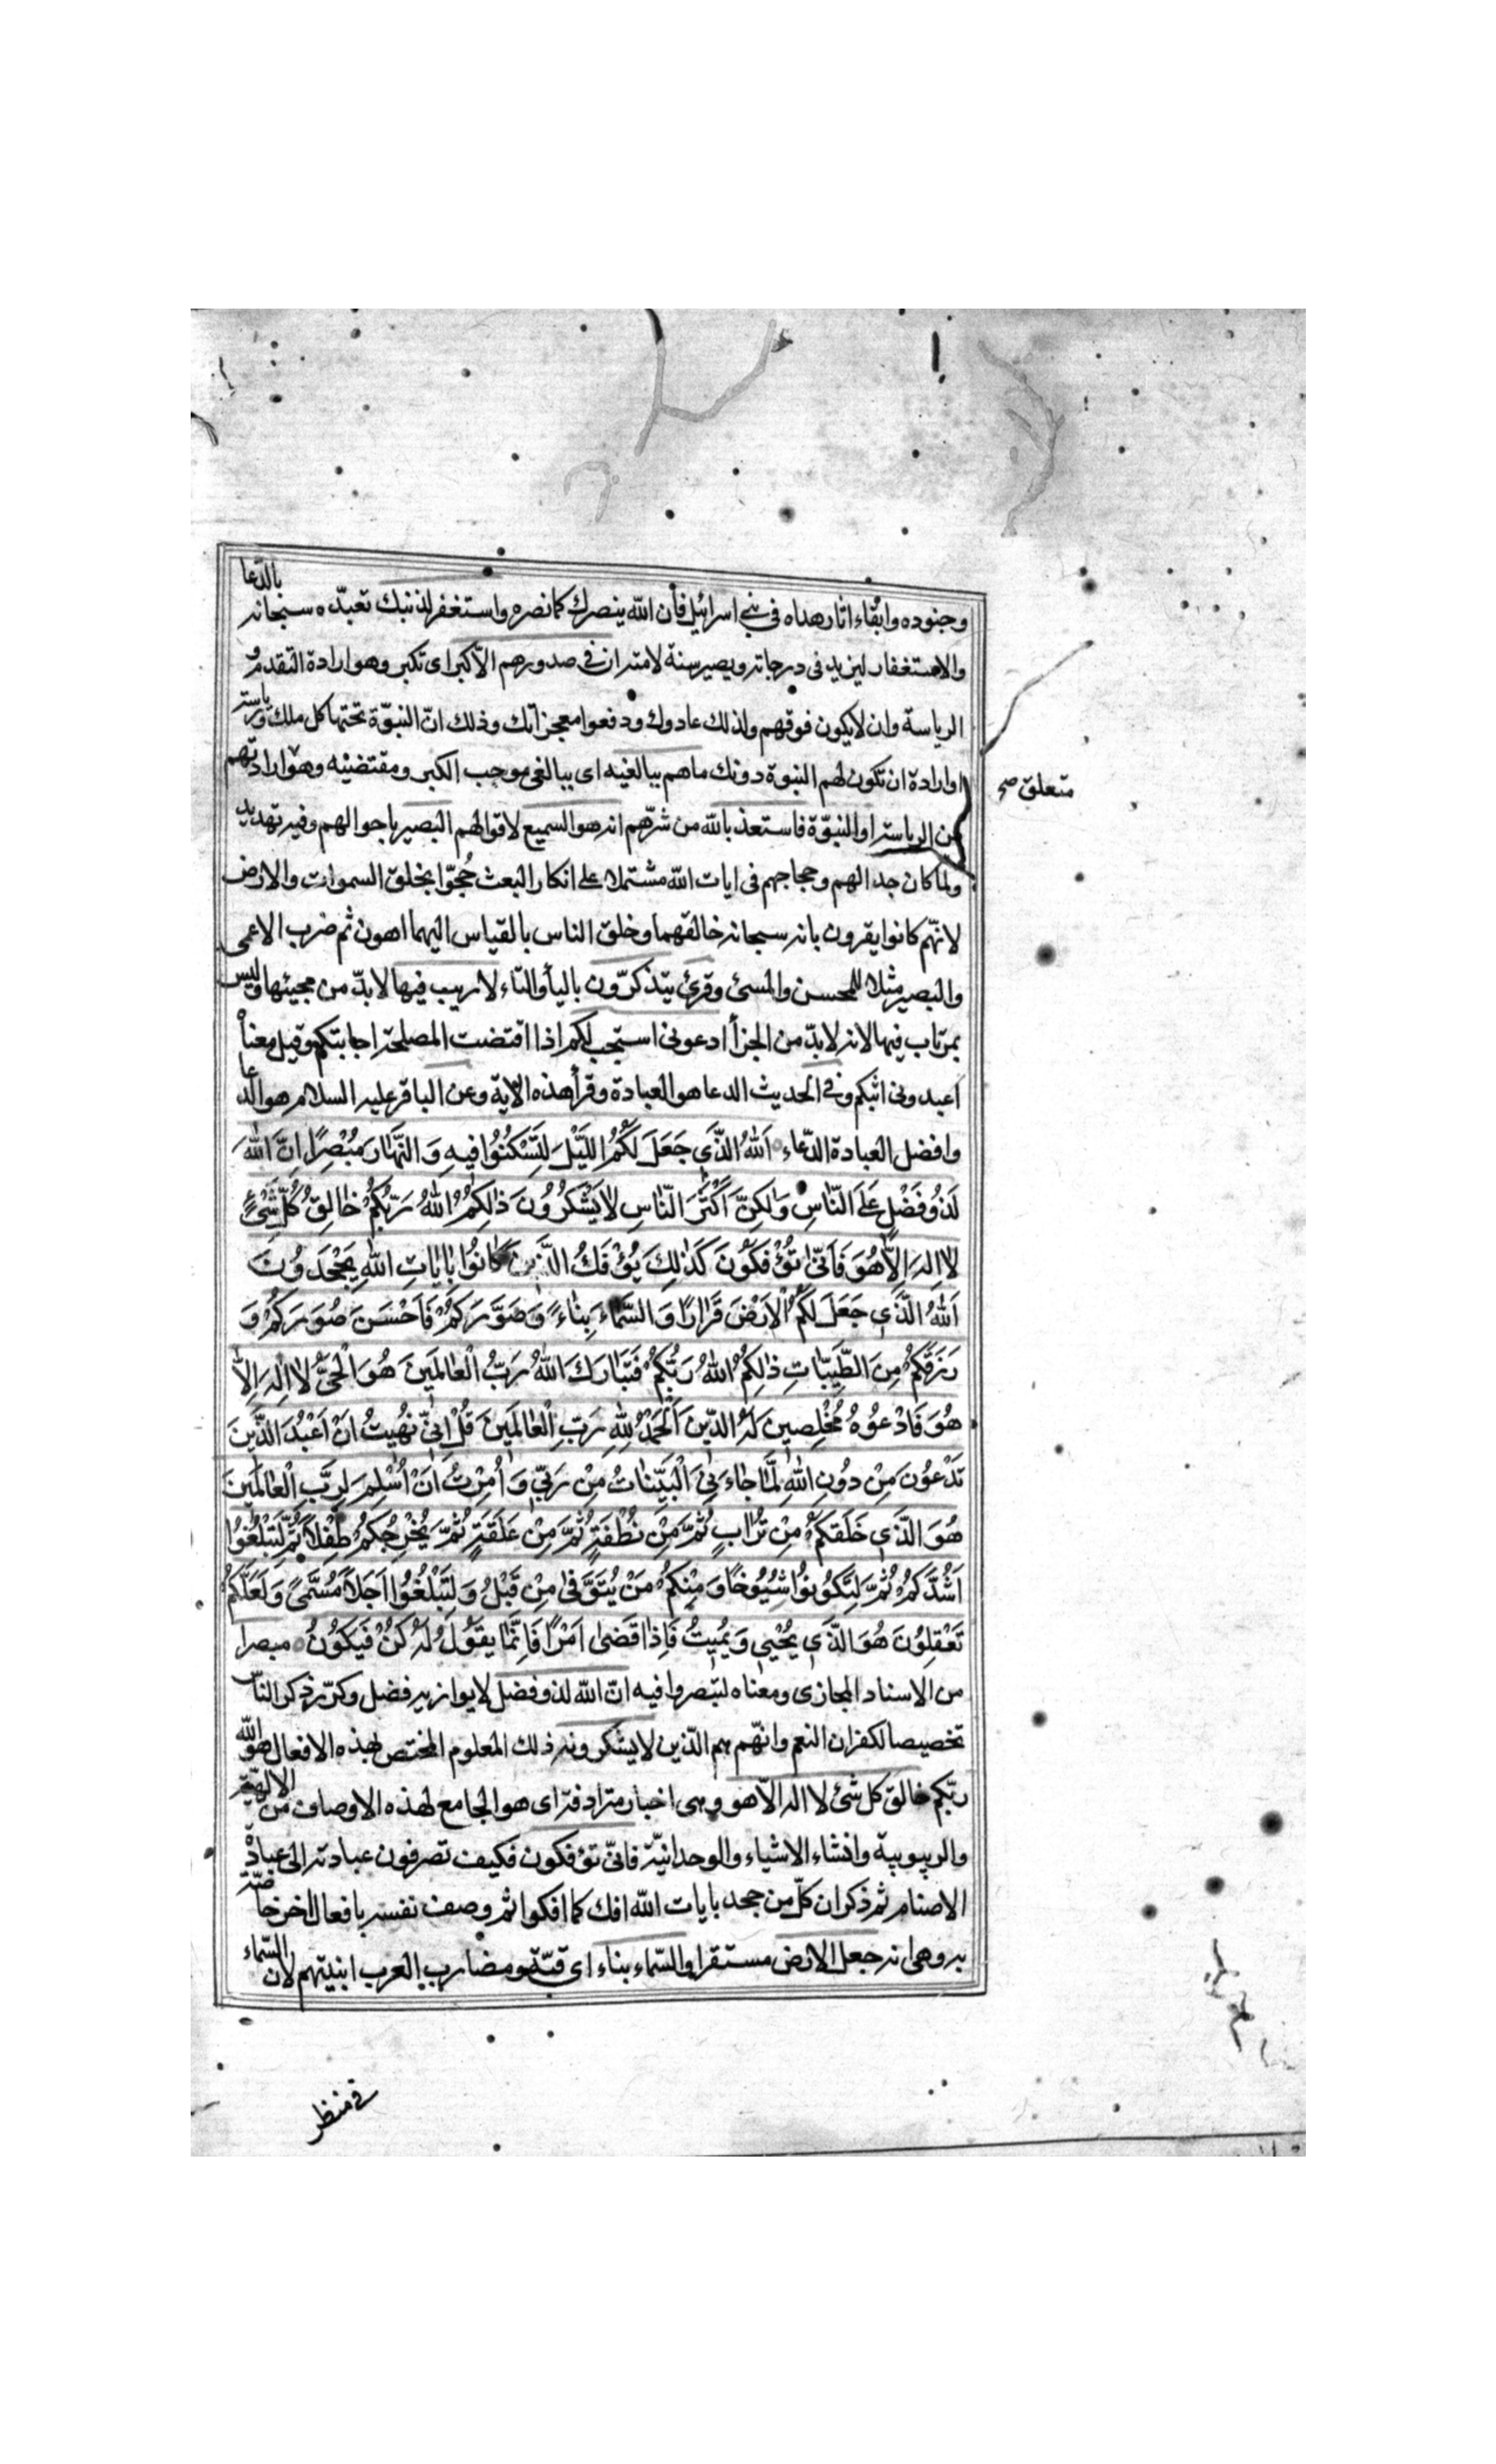 وجنوده وابقاء اثار هداه في بني اسرائيل فان الله ينصرك كما نصره واستغفر لذنبك تعبده سبحانه بالدعا
والاستغفار ليزيد في درجاته ويصير سنة لامته ان في صدورهم الا كبر اى تكبر وهو ارادة التقدم و
الرياسة وان لا يكون فوقهم ولذلك عادوك ودفعوا معجزاتك وذلك ان النبوة تحتها كل ملك ورياسة
او ارادة ان تكون لهم النبوة دونك ما هم ببالغيه اى ببالغى موجب الكبر ومقتضيه وهو ارادتهم
متعلق صح
من الرياسة او النبوة فاستعذ بالله من شرهم انه هو السميع لاقوالهم البصير باحوالهم وفيه تهديد
ولما كان جدالهم وحجاجهم فى ايات الله مشتملا على انكار البعث حُجّوا بخلق السموات والارض
لانهم كانوا يقرون بانه سبحانه خالقهما وخلق الناس بالقياس اليهما اهون ثم ضرب الاعمى
والبصير مثلا للمحسن والمسئ وقرئ يتذكرون بالياء والتاء لا ريب فيها لا بد من مجيئها وليس
بمرتاب فيها لانه لا بد من الجزأ ادعونى استجب لكم اذا اقتضت المصلحة اجابتكم وقيل معناه
اعبدونى اثبكم وفي الحديث الدعا هو العبادة وقرأ هذه الاية وعن الباقر عليه السلام هو الدعا
وافضل العبادة الدعاء اَللهُ الَّذي جَعَلَ لَكُمُ اللَّيْلَ لِتَسْكُنُوا فيهِ وَالنَّهارَ مُبْصِرًا اِنَّ اللهَ
لَذُو فَضْلٍ عَلَى النّاسِ وَلكِنَّ اَكْثَرَ النّاسِ لا يَشْكُرُونَ ذلِكُمُ اللهُ رَبُّكُمْ خالِقُ كُلِّ شَيْءٍ
لا اِلهَ اِلّا هُوَ فَاَنّى تُؤْفَكُونَ كَذلِكَ يُؤْفَكُ الَّذينَ كانُوا بِاياتِ اللهِ يَجْحَدُونَ
اَللهُ الَّذي جَعَلَ لَكُمُ الْاَرْضَ قَرارًا وَالسَّماءَ بِناءً وَصَوَّرَكُمْ فَاَحْسَنَ صُوَرَكُمْ وَ
رَزَقَكُمْ مِنَ الطَّيِّباتِ ذلِكُمُ اللهُ رَبُّكُمْ فَتَبارَكَ اللهُ رَبُّ الْعالَمينَ هُوَ الْحَيُّ لا اِلهَ اِلّا
هُوَ فَادْعُوهُ مُخْلِصينَ لَهُ الدّينَ اَلْحَمْدُ لِلهِ رَبِّ الْعالَمينَ قُلْ اِنّي نُهيتُ اَنْ اَعْبُدَ الَّذينَ
تَدْعُونَ مِنْ دُونِ اللهِ لَمّا جاءَنِيَ الْبَيِّناتُ مِنْ رَبّي وَاُمِرْتُ اَنْ اُسْلِمَ لِرَبِّ الْعالَمينَ
هُوَ الَّذي خَلَقَكُمْ مِنْ تُرابٍ ثُمَّ مِنْ نُطْفَةٍ ثُمَّ مِنْ عَلَقَةٍ ثُمَّ يُخْرِجُكُمْ طِفْلًا ثُمَّ لِتَبْلُغُوا
اَشُدَّكُمْ ثُمَّ لِتَكُونُوا شُيُوخًا وَمِنْكُمْ مَنْ يُتَوَفّى مِنْ قَبْلُ وَلِتَبْلُغُوا اَجَلًا مُسَمًّى وَلَعَلَّكُمْ
تَعْقِلُونَ هُوَ الَّذي يُحْيي وَيُميتُ فَاِذا قَضى اَمْرًا فَاِنَّما يَقُولُ لَهُ كُنْ فَيَكُونُ مبصرا
من الاسناد المجازى ومعناه لتبصروا فيه ان الله لذو فضل لا يوازيه فضل وكرر ذكر الناس
تخصيصا لكفران النعم وانهم هم الذين لا يشكرونه ذلك المعلوم المختص بهذه الافعال هو الله
ربكم خالق كل شئ لا اله الا هو وهى اخبار مترادفة اى هو الجامع لهذه الاوصاف من الالهية
والربوبية وانشاء الاشياء والوحدانية فانى تؤفكون فكيف تصرفون عبادته الى عبادة
الاصنام ثم ذكر ان كل من جحد بايات الله افك كما افكوا ثم وصف نفسه بافعال اخر خاصة
به وهى انه جعل الارض مستقرا والسماء بناء اى قبة ومضارب العرب ابنيتهم لان السماء
في منظر